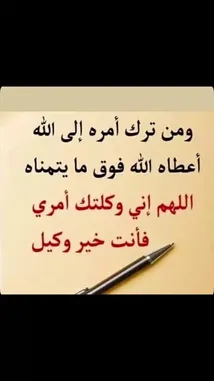 ومن ترك أمره إلى الله
أعطاه الله فوق ما يتمناه
اللهم إني وكلتك أمري
فأنت خير وكيل